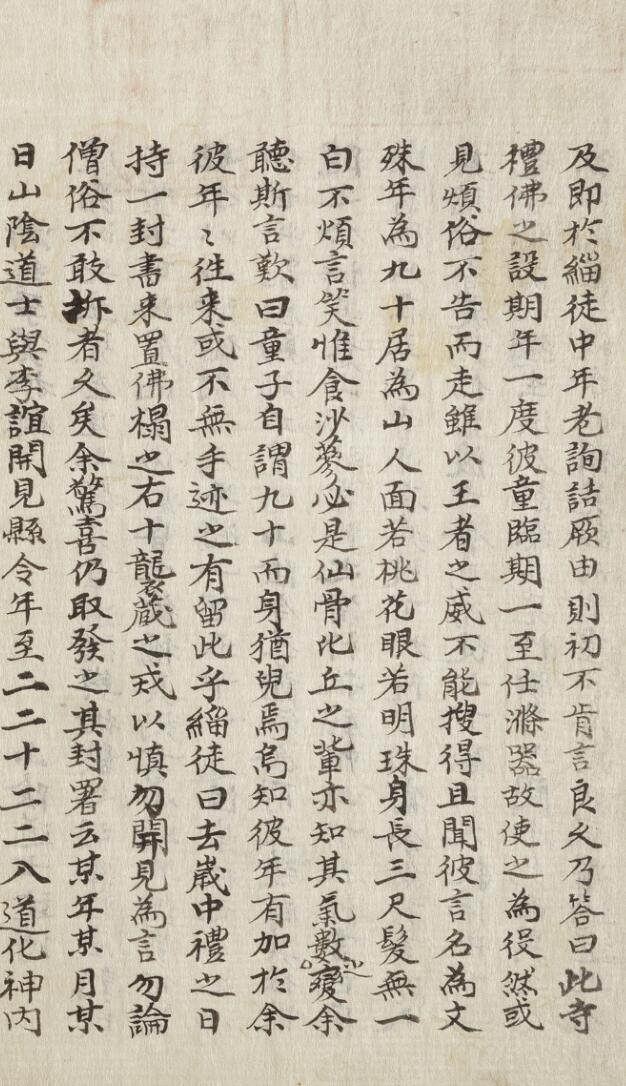 及即於緇徒中年老詢詰厥由則初不肯言良久乃答曰此寺
禮佛之設期年一度彼童臨期一至任滌器故使之為役然或
見煩俗不告而走雖以王者之威不能搜得且聞彼言名為文
殊年為九十居為山人面若桃花眼若明珠身長三尺髮無一
白不煩言笑惟食沙蔘必是仙骨比丘之輩亦知其氣數之變余
聽斯言歎曰童子自謂九十而身猶兒焉烏知彼年有加於余
彼年〻徃来或不無手迹之有留此乎緇徒曰去歲中禮之日
持一封書来置佛榻之右十龍衮藏之戎以慎勿開見為言勿論
僧俗不敢拆者久矣余驚喜仍取發之其封署云某年某月某
日山陰道士與李誼開見縣令年至二二十二二八道化神内